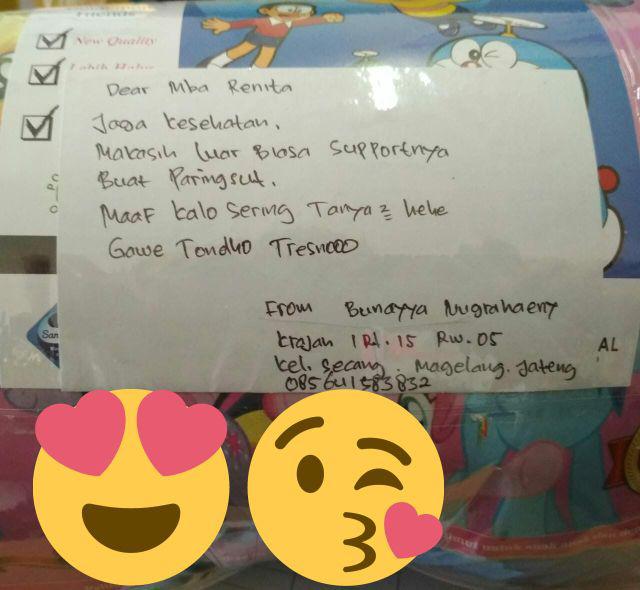 Friends
New Quality
Dear Mba Renita
Jaga kesehatan.
Makasih luar Biasa supportnya
Buat Paringsut.
Maaf kalo sering Tanya2 hehe
Gawe Tondho Tresnooo
From Bunayya Nugrahaeny
Krajan 1 Rt.15 Rw.05
AL
kel. Secang. Magelang. Jateng
085641583832
San